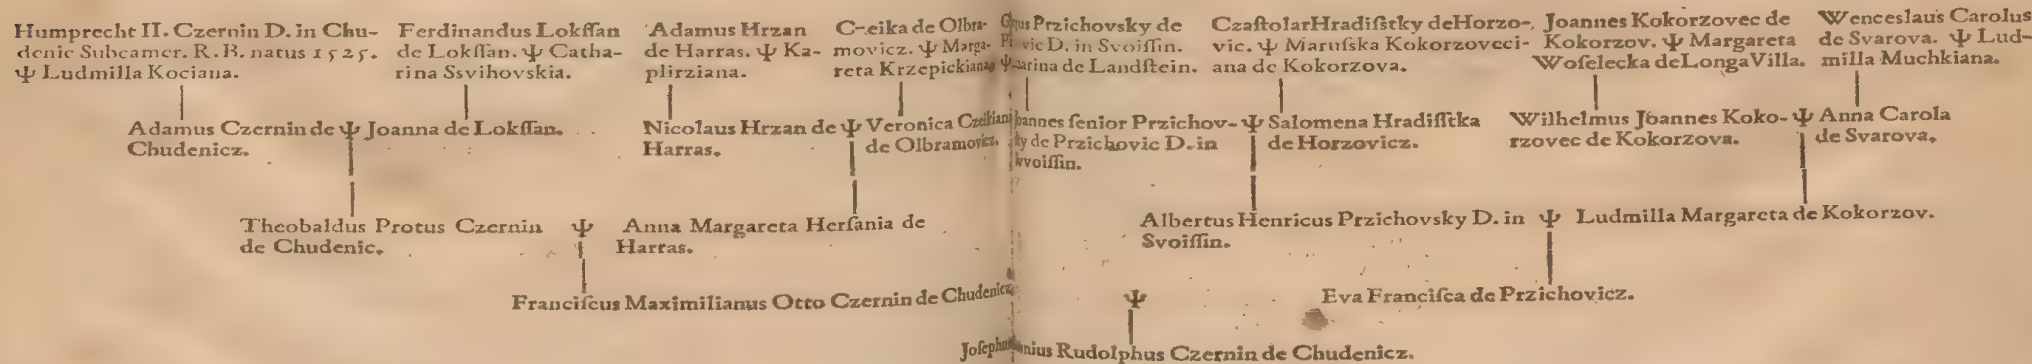 Humprecht II. Czernin D. in Chu-
denic Subcamer. R. B. natus 1525.
Ψ Ludmilla Kociana.
Ferdinandus Lokſſan
de Lokſſan. Ψ Catha-
rina Ssvihovskia.
Adamus Hrzan
de Harras. Ψ Ka-
plirziana.
de Olbra-
movicz. Ψ Marga-
reta Krzepickiana
Przichovsky de
vic D. in Svoiſſin.
Ψ de Landſtein.
Czaſtolar Hradiſstky de Horzo-
vic. Ψ Maruſska Kokorzoveci-
ana de Kokorzova.
Joannes Kokorzovec de
Kokorzov. Ψ Margareta
Woſelecka de Longa Villa.
Wenceslaus Carolus
de Svarova. Ψ Lud-
milla Muchkiana.
Adamus Czernin de Ψ Joanna de Lokſſan.
Chudenicz.
Nicolaus Hrzan de Ψ Veronica
Harras.
de Olbramovicz.
senior Przichov- Ψ Salomena Hradiſstka
de Przichovic D. in
de Horzovicz.
Wilhelmus Joannes Koko- Ψ Anna Carola
rzovec de Kokorzova.
de Svarova.
Theobaldus Protus Czernin Ψ Anna Margareta Herſania de
de Chudenic.
Harras.
Albertus Henricus Przichovsky D. in Ψ Ludmilla Margareta de Kokorzov.
Svoiſſin.
Franciſcus Maximilianus Otto Czernin de Chudenicz Ψ Eva Franciſca de Przichovicz.
Rudolphus Czernin de Chudenicz.